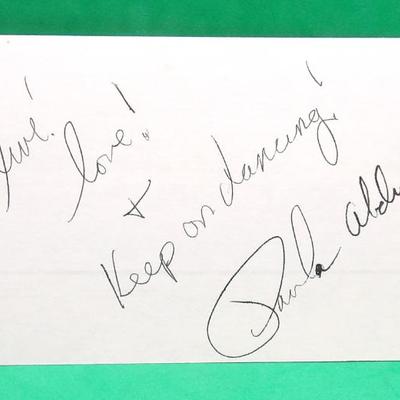 Live!
love!
+
Keep on dancing!
Paula Abdu